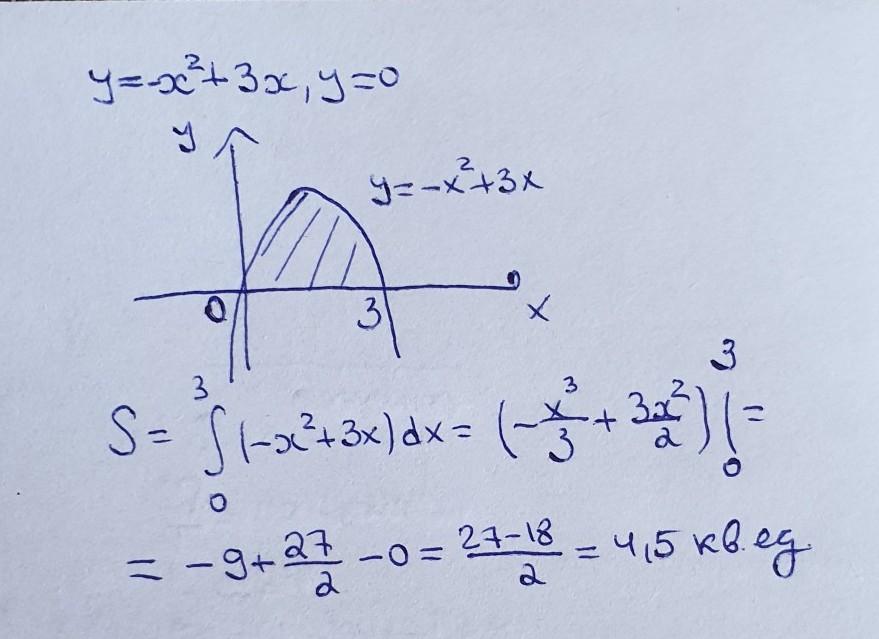 y=-x²+3x, y=0
y
y=-x²+3x
0 3 x
S = ∫₀³ (-x²+3x)dx = (-x³/3 + 3x²/2)|₀³ =
= -9+27/2 -0 = 27-18/2 = 4,5 кв.ед.